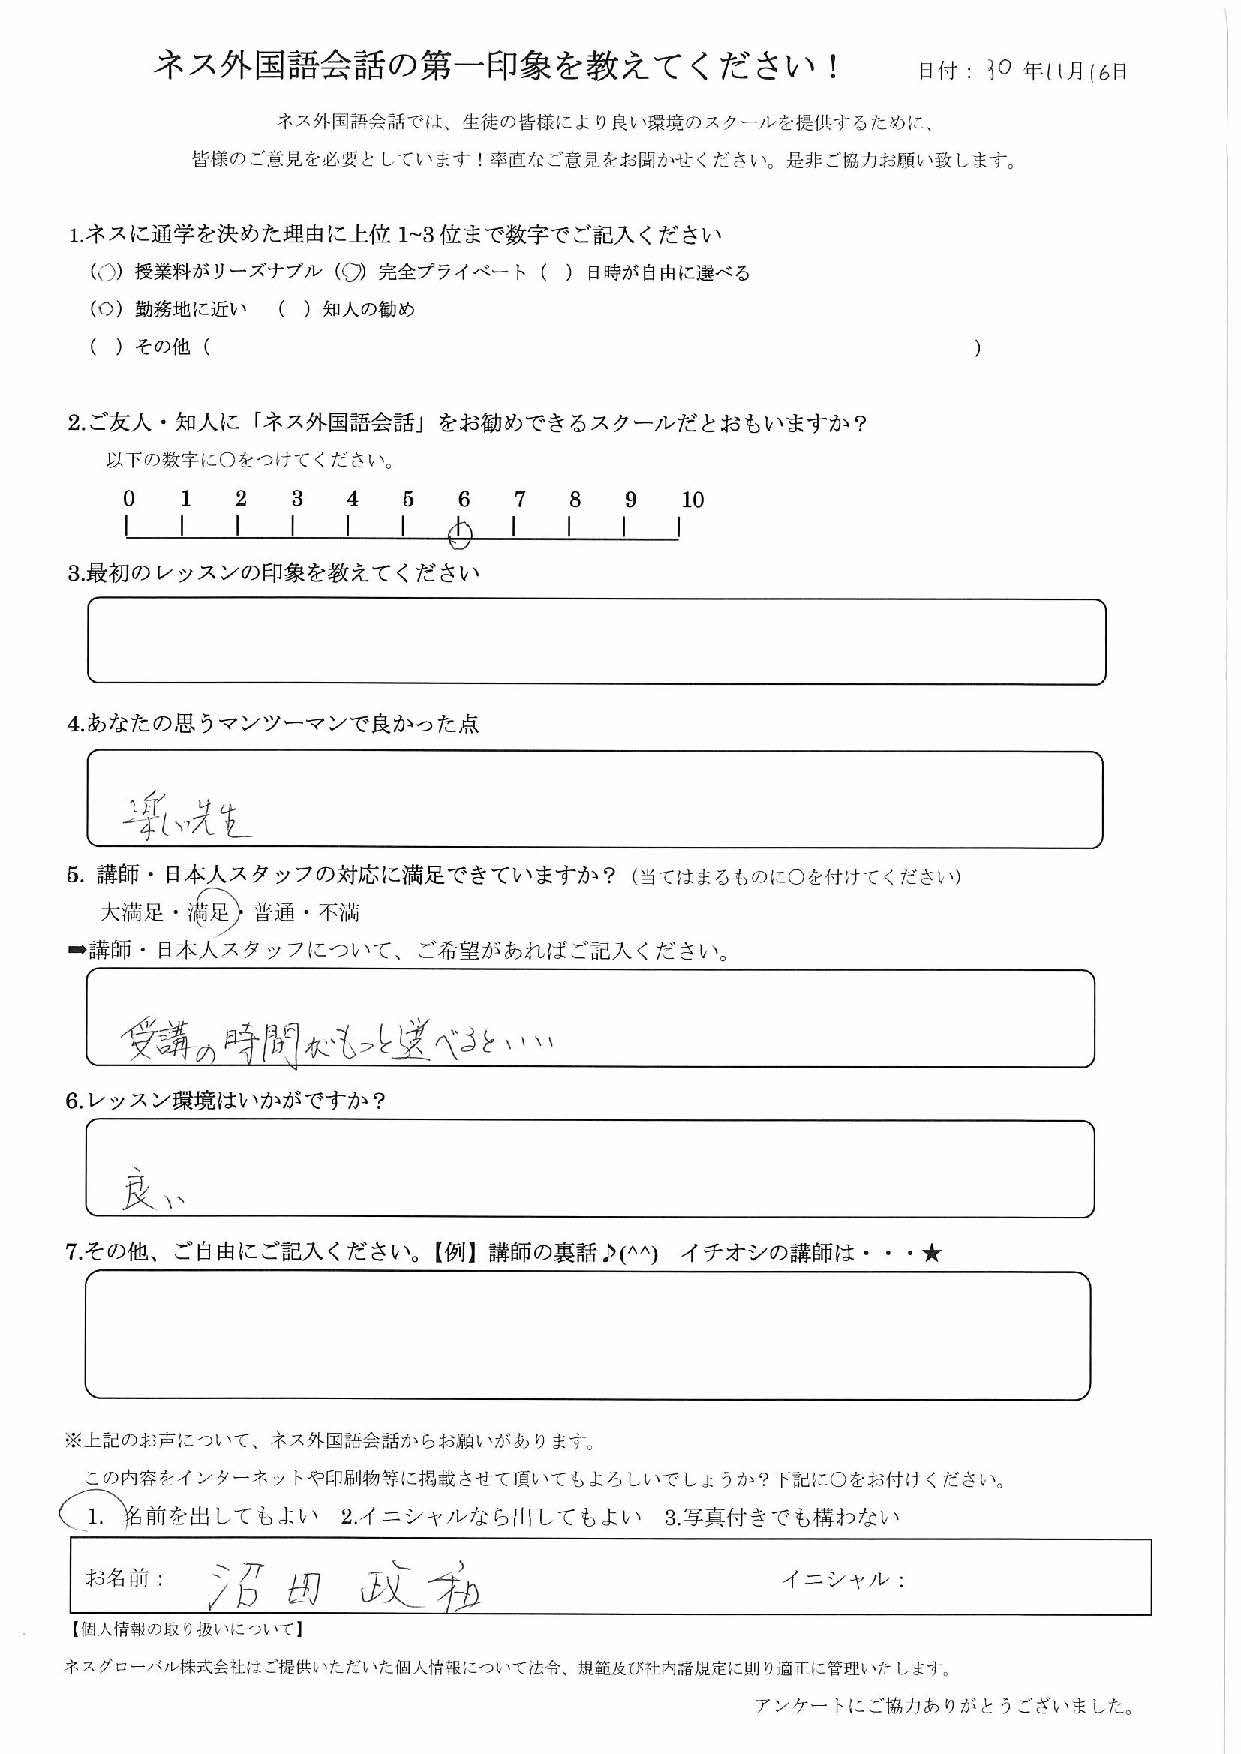 ネス外国語会話の第一印象を教えてください！ 日付：30年11月16日
ネス外国語会話では、生徒の皆様により良い環境のスクールを提供するために、
皆様のご意見を必要としています！率直なご意見をお聞かせください。是非ご協力お願い致します。
1.ネスに通学を決めた理由に上位 1~3 位まで数字でご記入ください
（○）授業料がリーズナブル（○）完全プライベート（　）日時が自由に選べる
（○）勤務地に近い　（　）知人の勧め
（　）その他（　）
2.ご友人・知人に「ネス外国語会話」をお勧めできるスクールだとおもいますか？
以下の数字に〇をつけてください。
0 1 2 3 4 5 6 7 8 9 10
3.最初のレッスンの印象を教えてください
4.あなたの思うマンツーマンで良かった点
楽しい先生
5. 講師・日本人スタッフの対応に満足できていますか？（当てはまるものに〇を付けてください）
大満足・満足・普通・不満
➡講師・日本人スタッフについて、ご希望があればご記入ください。
受講の時間がもっと選べるといい
6.レッスン環境はいかがですか？
良い
7.その他、ご自由にご記入ください。【例】講師の裏話♪(^^)　イチオシの講師は・・・★
※上記のお声について、ネス外国語会話からお願いがあります。
この内容をインターネットや印刷物等に掲載させて頂いてもよろしいでしょうか？下記に〇をお付けください。
1. 名前を出してもよい　2.イニシャルなら出してもよい　3.写真付きでも構わない
お名前： 沼田 政和 イニシャル：
【個人情報の取り扱いについて】
ネスグローバル株式会社はご提供いただいた個人情報について法令、規範及び社内諸規定に則り適正に管理いたします。
アンケートにご協力ありがとうございました。